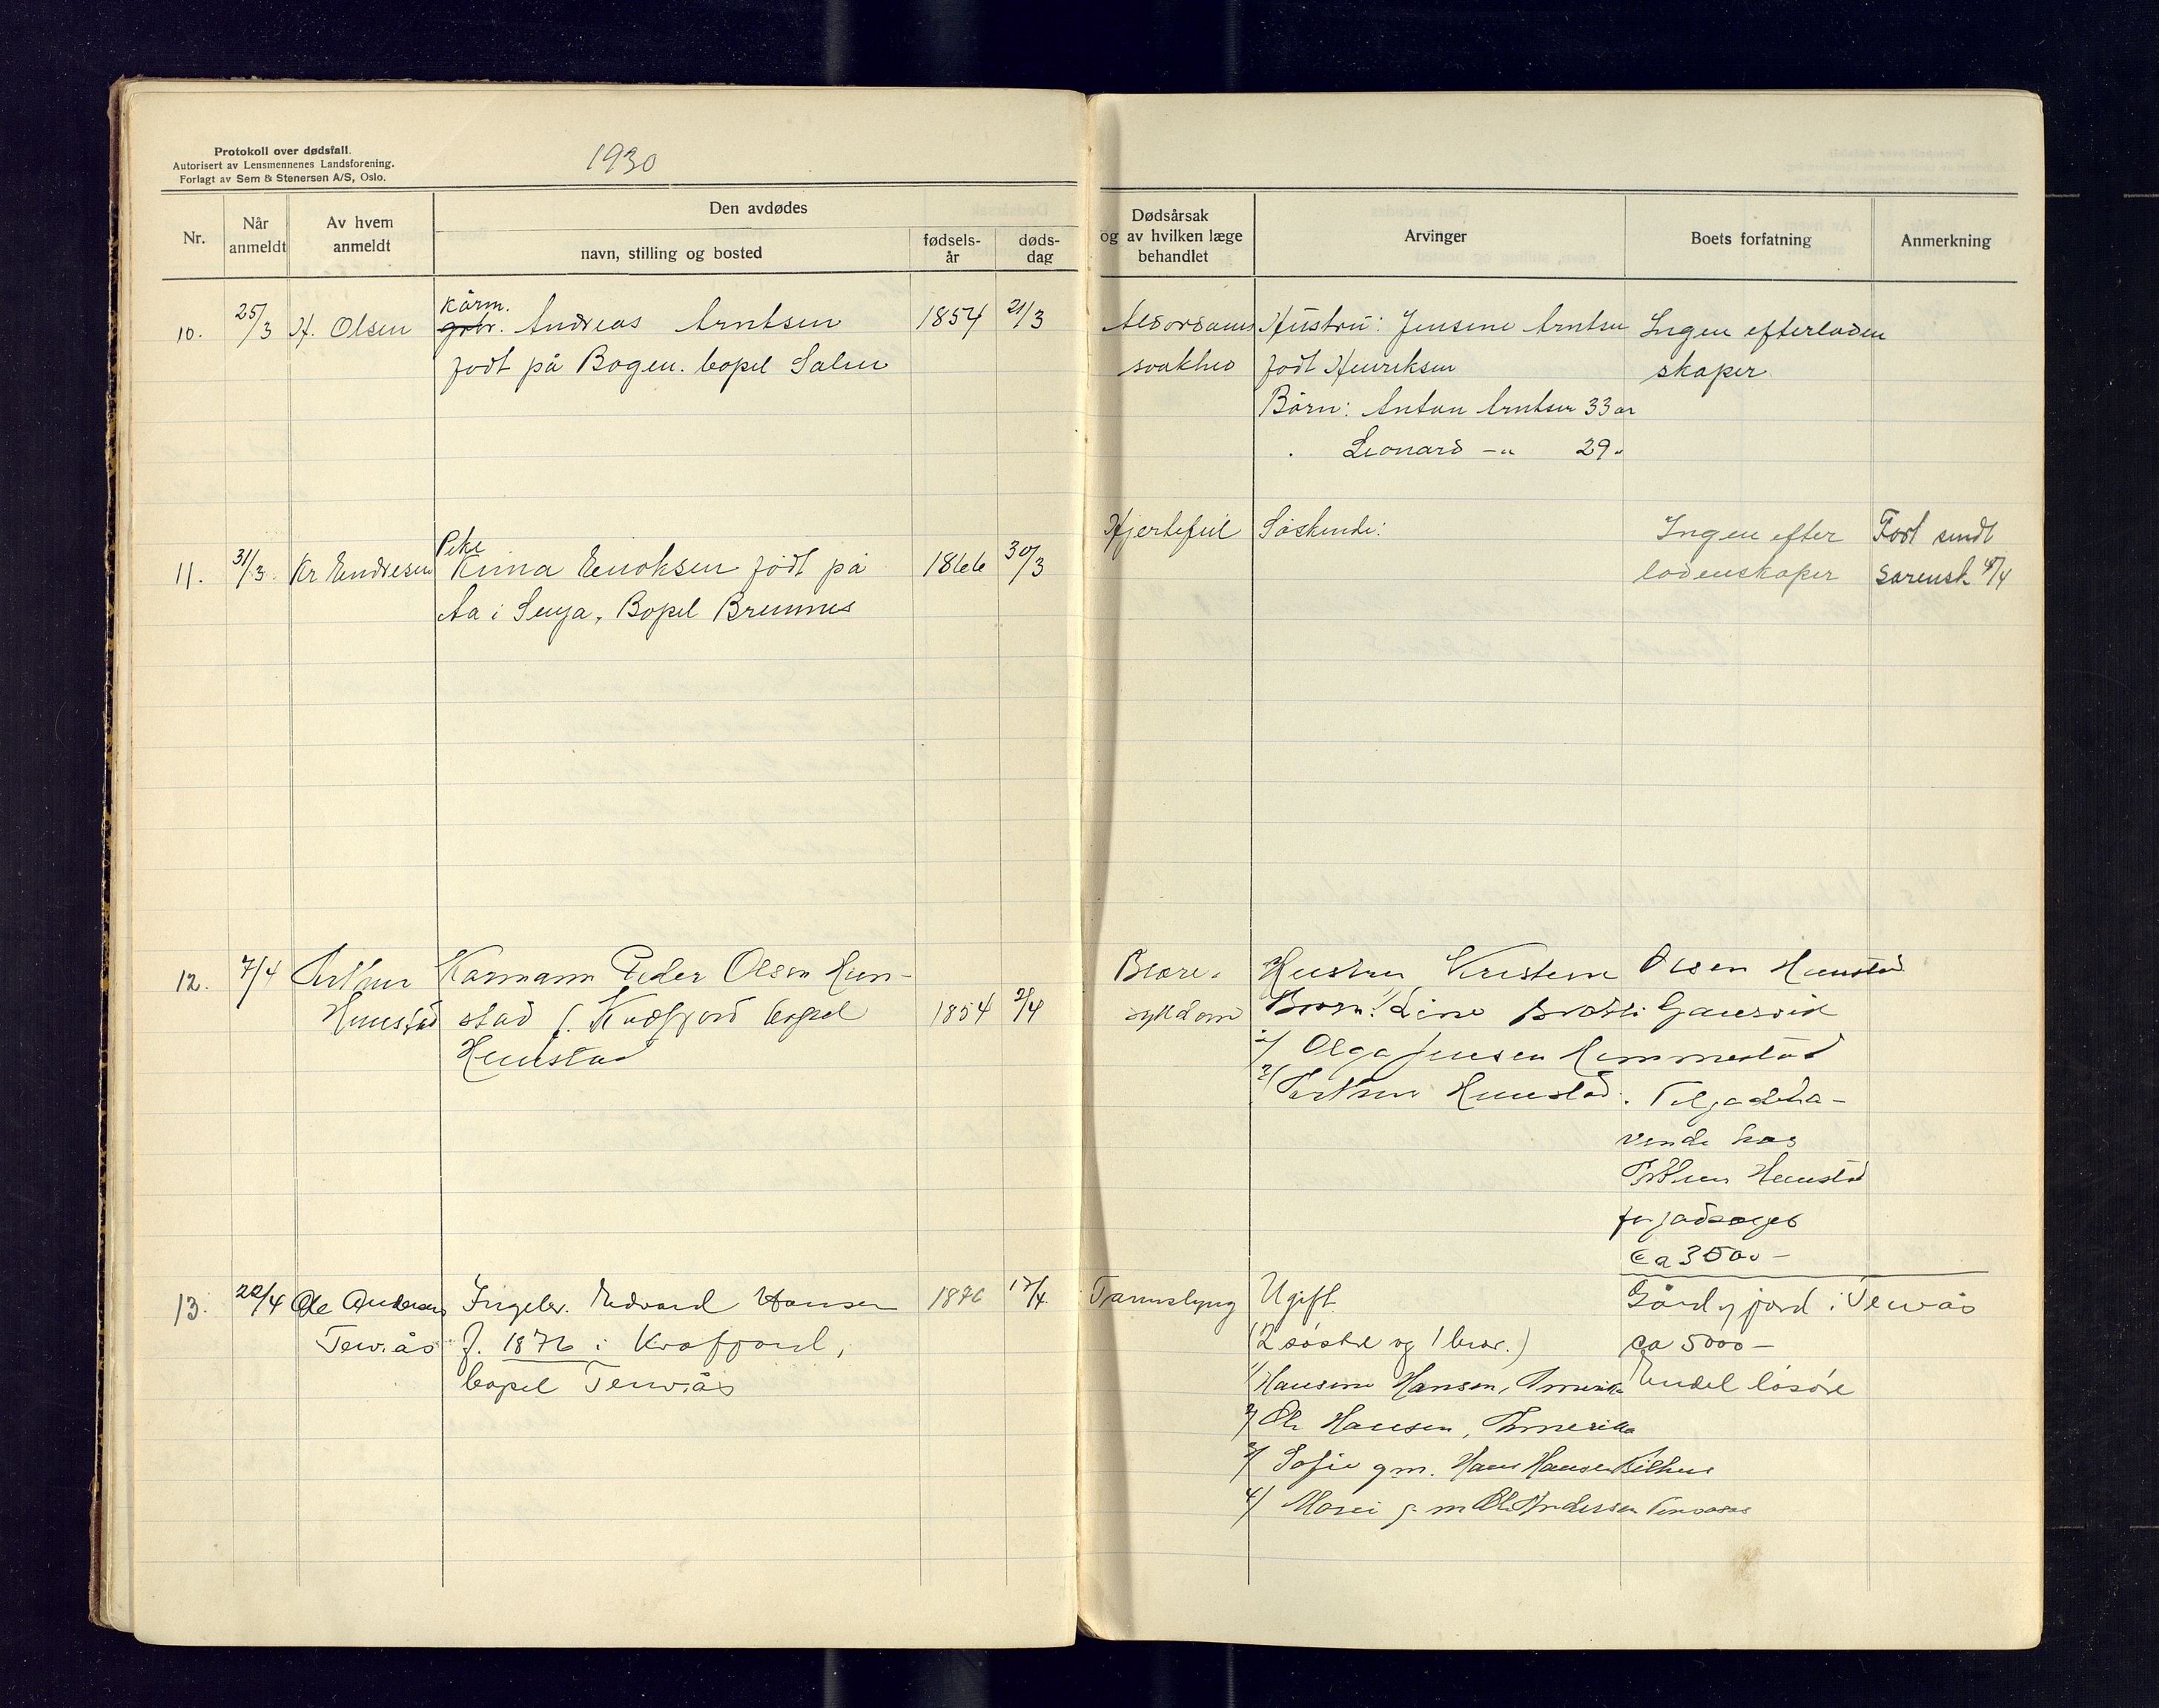 Protokoll over dødsfall.
Autorisert av Lensmennenes Landsforening.
Forlagt av Sem & Stenersen A/S, Oslo.
1930
Nr.
Når anmeldt
Av hvem anmeldt
Den avdødes
navn, stilling og bosted
fødsels-år
døds-dag
Dødsårsak og av hvilken læge behandlet
Arvinger
Boets forfatning
Anmerkning
10. 25/3 H. Olsen
kårm.
gbr. Andreas Arntsen 1854 21/3
født på Bogen. bopel Salen
Alderdoms
svakhed
Hustru: Jensine Arntsen
født Henriksen
Børn: Anton Arntsen 33 år
Leonard -"- 29 "
Ingen efterladen
skaper
11. 31/3. Kr Endresen
Pike
Enoksen født på 1866 30/3
Aa i Senja, Bopel Bremnes
Hjertefeil
Søskende:
Ingen efter
ladenskaper
Fort sendt
sorensk. /4
12. 7/4 Arthur
Hunstad
Karmann Peder Olsen Hun-
stad f. Kvæfjord bopel 1854 2/4
Hunstad
Blære-
sykdom
Hustru Kristene Olsen Hunstad
Børn: 1/ Line
2/ Olga Jensen Hemmestad
3/ Arthur Hunstad.
Tilgodeha-
vende hos
Arthur Hunstad
for jordsalget
ca 3500 -
13. 22/4 Ole Andersen
Tenvås
Ungkar. Edvard Hansen 1876 17/4.
f. 1876 i Kvæfjord,
bopel Tenvås
Tarmslyng
Ugift.
(2 søstre og 1 bror.)
1/ Hansine Hansen, Amerika
2/ Ole Hansen, Amerika
3/ Sofie g.m. Hans Hansen
4/ Marie g. m Ole Andersen Tenvaas
Gård og jord i Tenvås
ca 5000 -
Endel løsøre